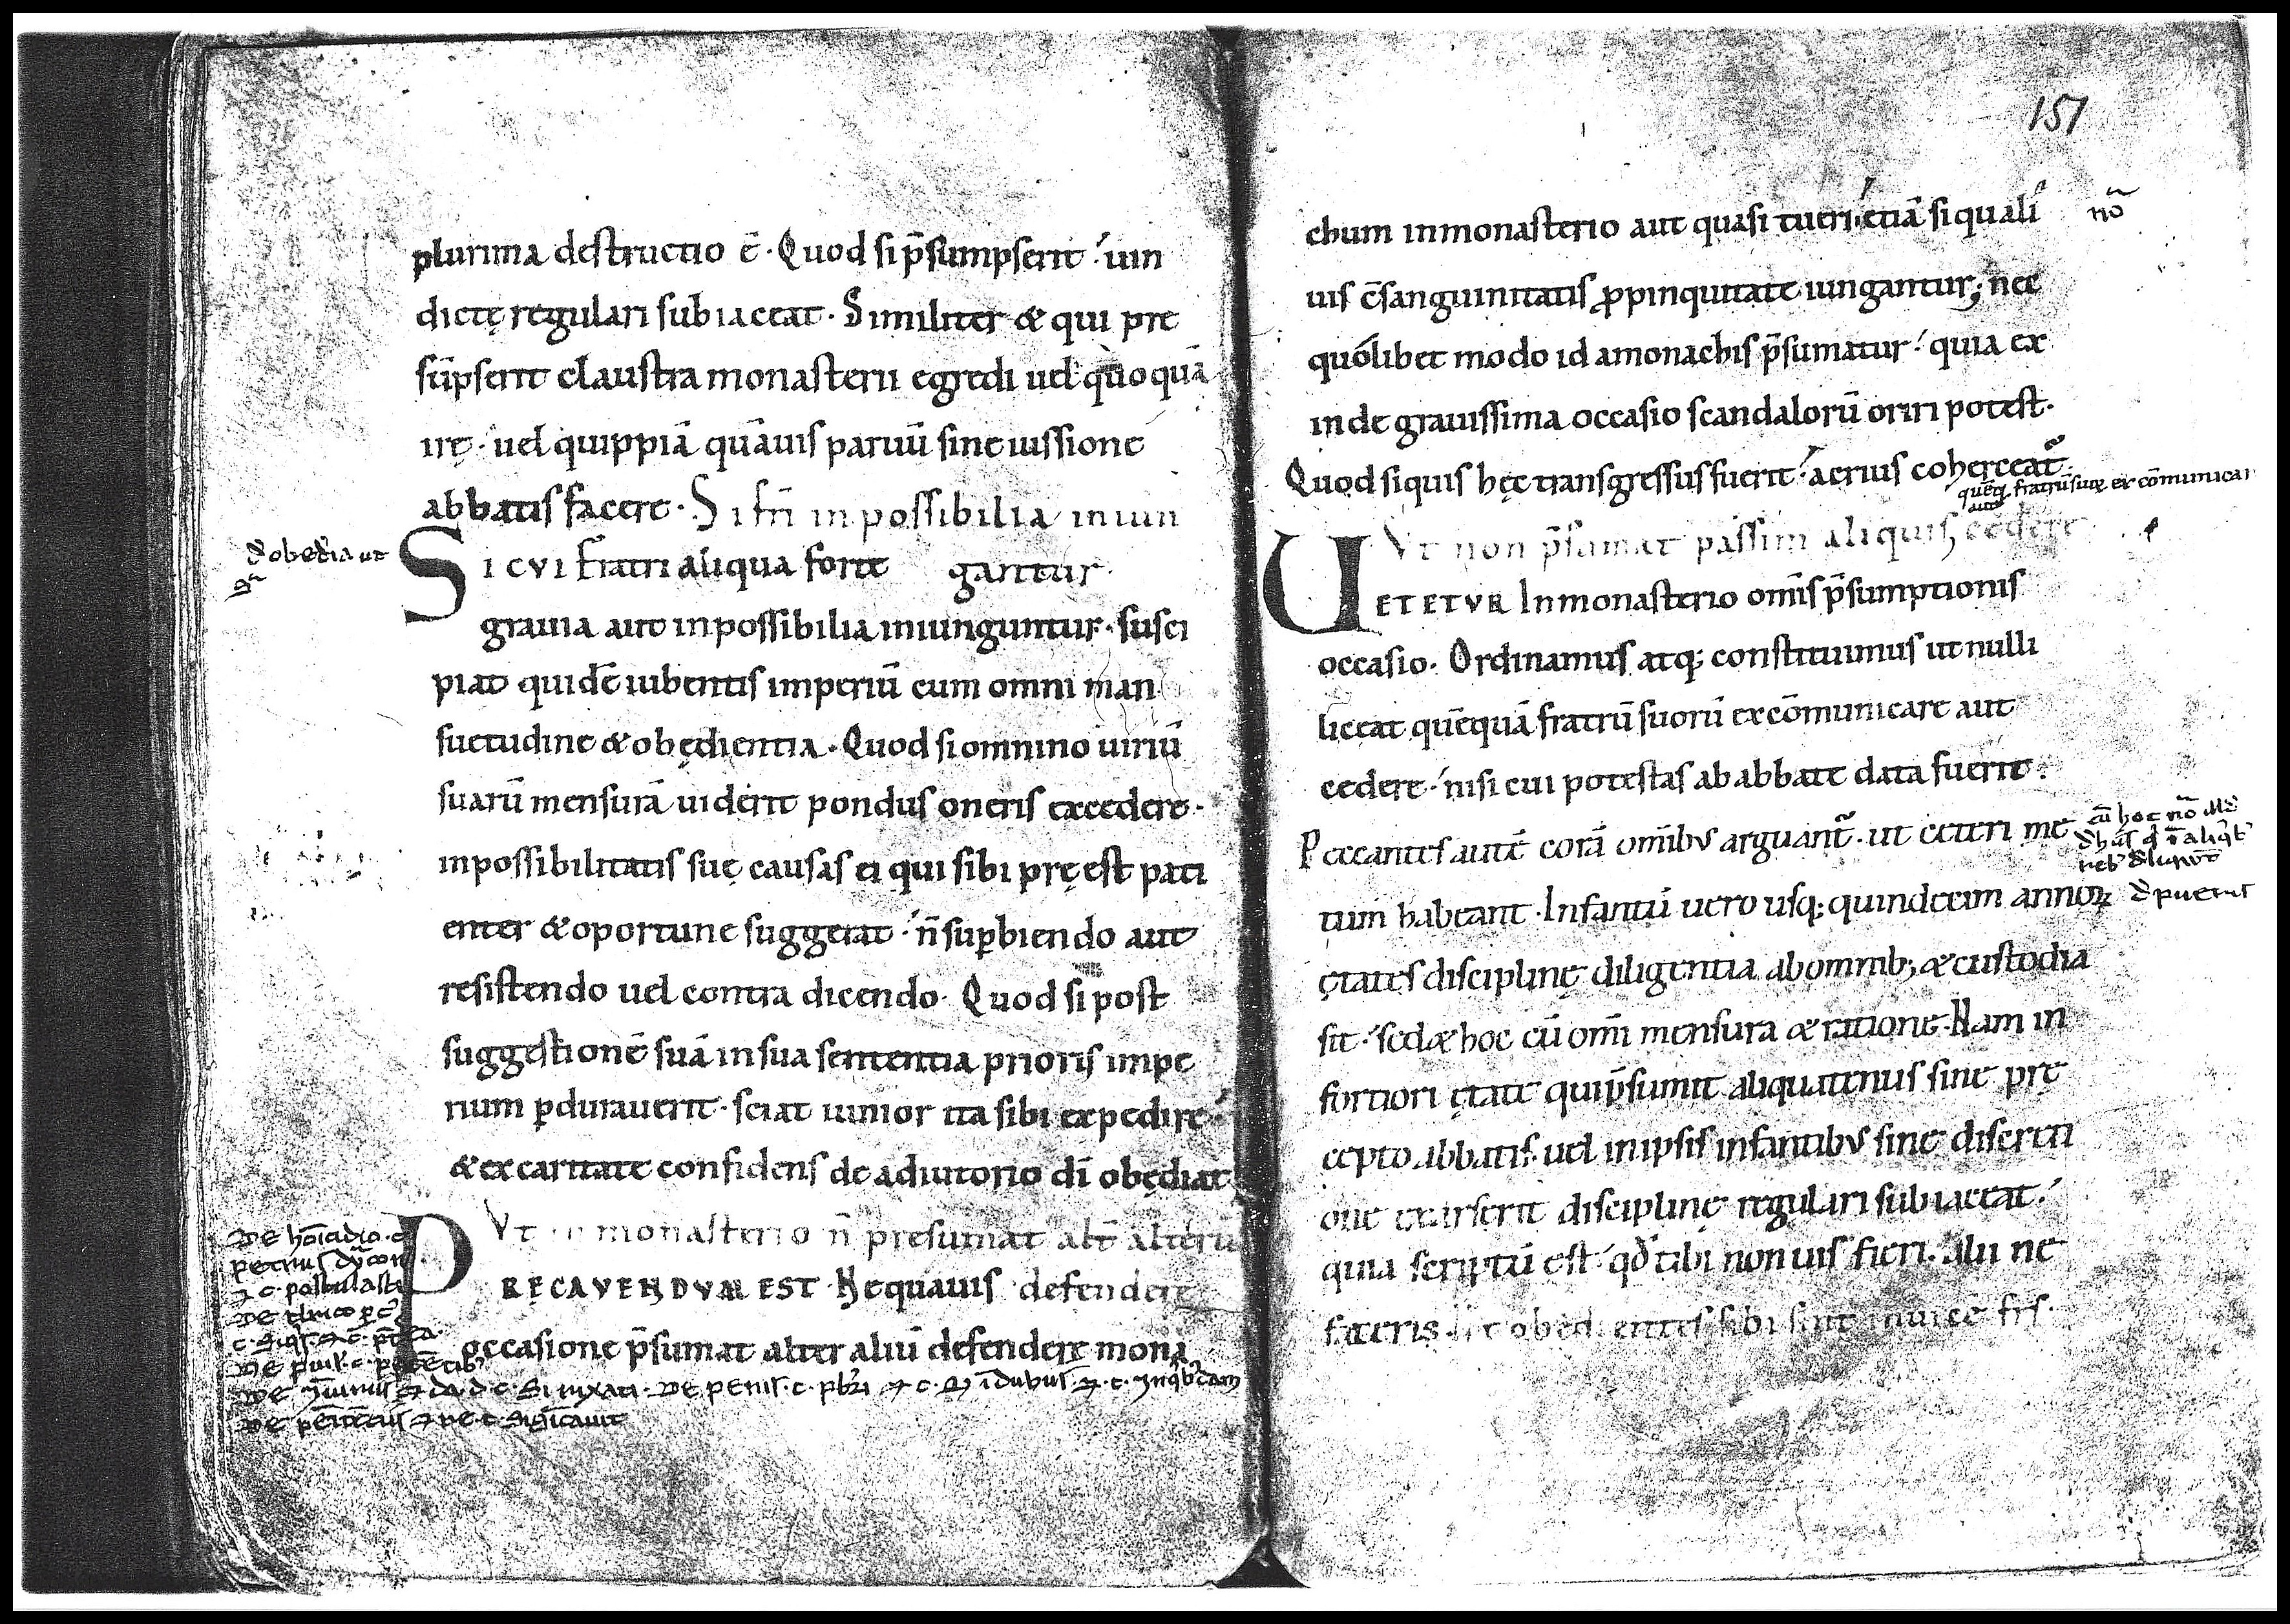 plurima destructio ē. Quod si p̄sumpserit: uin
dictę regulari subiaceat. Similiter & qui pre
sūpserit claustra monasterii egredi uel quoquā
irę. uel quippiā quāuis paruū sine iussione
abbatis facere. Si fr̄i inpossibilia iniun
SI CVI fratri aliqua forte gantur
grauia aut inpossibilia iniunguntur. susci
piat quidē iubentis imperiū cum omni man
suetudine & obędientia. Quod si omnino uiriū
suarū mensurā uiderit pondus oneris excedere.
inpossibilitatis suę causas ei qui sibi pręest pati
enter & oportune suggerat: n̄ sup̱biendo aut
resistendo uel contra dicendo. Quod si post
suggestionē suā in sua sententia prioris impe
rium p̱durauerit. sciat iunior ita sibi expedire:
& ex caritate confidens de adiutorio dī obędiat
Vt in monasterio n̄ presumat alt̄ alterū
PRĘCAVENDVM EST Nequauis defendere
occasione p̄sumat alter aliū defendere mona
151
chum in monasterio aut quasi tueri: etiā si quali
nō
uis c̄sanguinitatis ꝓpinquitate iungantur; nec
quolibet modo id a monachis p̄sumatur: quia ex
inde grauissima occasio scandalorū oriri potest.
Quod si quis hęc transgressus fuerit: acrius coherceat᷑
Vt non p̄sumat passim aliquis cedere
UETETVR In monasterio om̄is p̄sumptionis
occasio. Ordinamus atq; constituimus ut nulli
liceat quēquā fratrū suorū excōmunicare aut
cedere: nisi cui potestas ab abbate data fuerit.
Peccantes autē corā omībus arguant᷑. ut ceteri me
tum habeant. Infantū uero usq; quindecim annoꝝ
ꝺ pueris
ętates disciplinę diligentia ab omnib; & custodia
sit: sed & hoc cū om̄i mensura & ratione. Nam in
fortiori ętate qui p̄sumit aliquatenus sine pre
cepto abbatis. uel in ipsis infantibus sine discreti
one exarserit disciplinę regulari subiaceat:
quia scriptū est: qđ tibi non uis fieri. alii ne
feceris. Ut obedientes sibi sint inuicē frs̄.